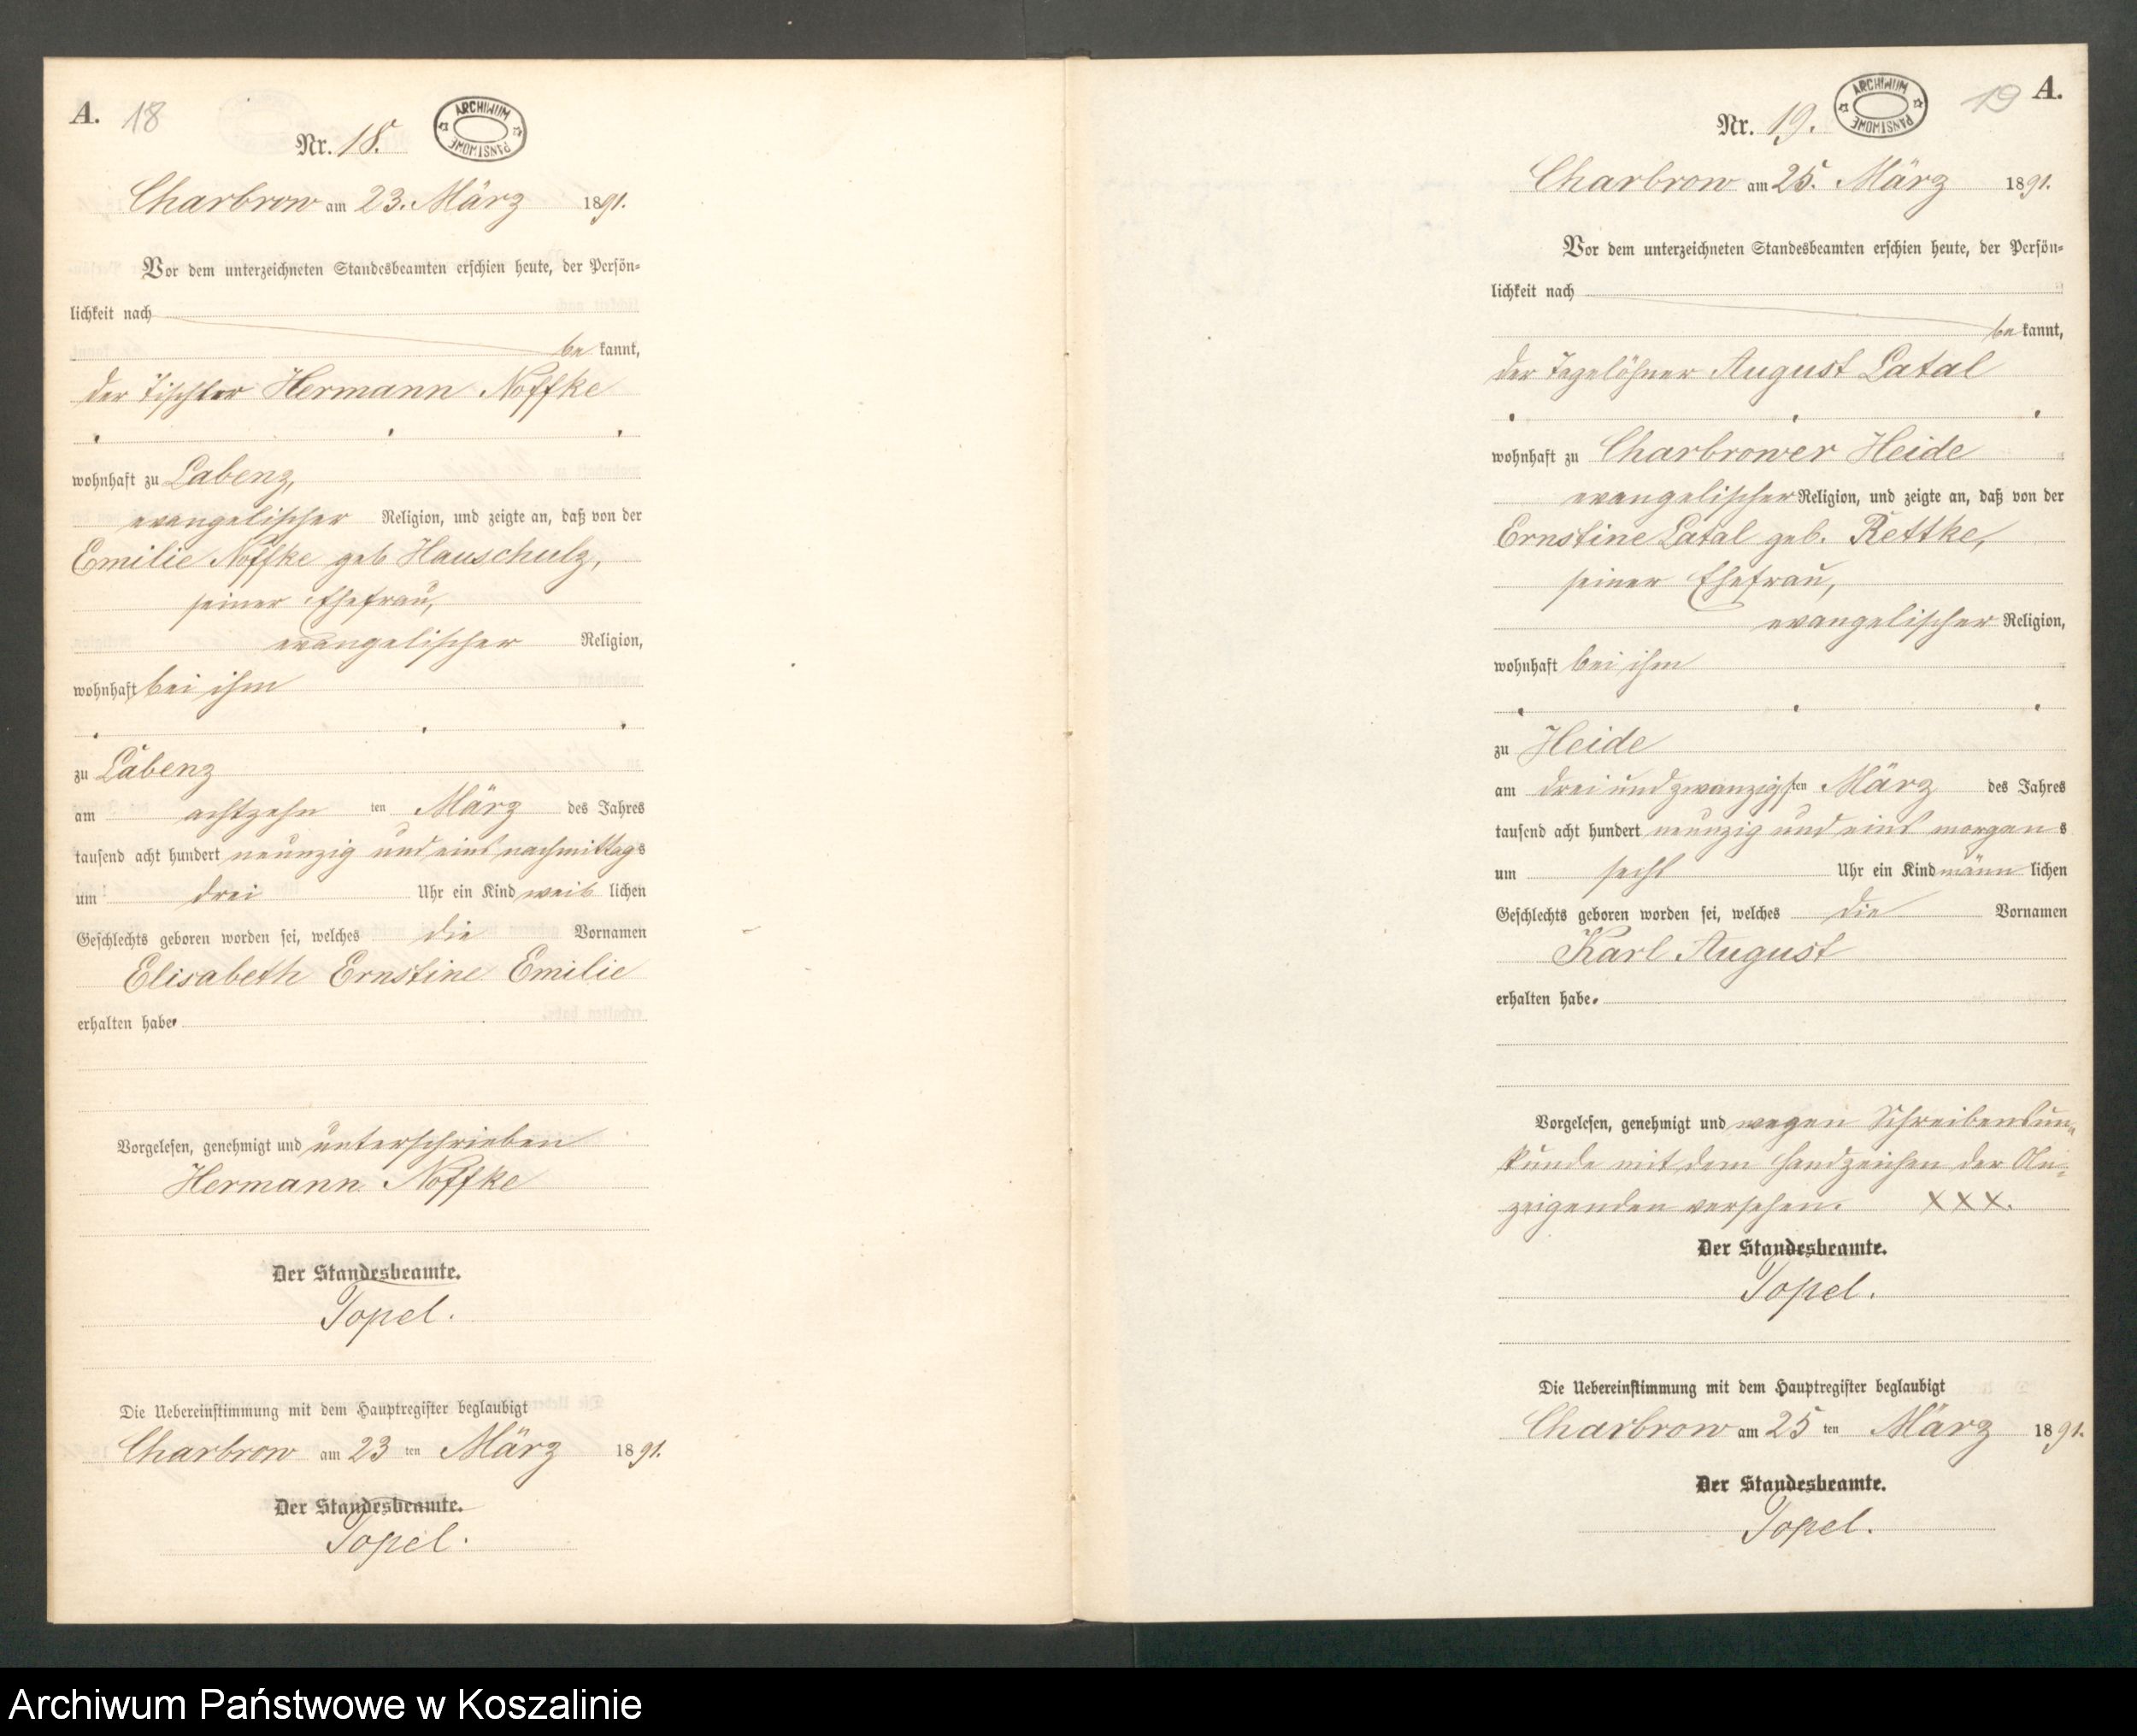 A. 18
Nr. 18.
ARCHIWUM PAŃSTWOWE
Charbrow am 23. März 1891.
Vor dem unterzeichneten Standesbeamten erschien heute, der Persön-
lichkeit nach
be kannt,
der Tischler Hermann Noffke
wohnhaft zu Labenz,
evangelischer Religion, und zeigte an, daß von der
Emilie Noffke geb Hauschulz,
seiner Ehefrau,
evangelischer Religion,
wohnhaft bei ihm
zu Labenz
am achtzehn ten März des Jahres
tausend acht hundert neunzig und eins nachmittags
um drei Uhr ein Kind weib lichen
Geschlechts geboren worden sei, welches die Vornamen
Elisabeth Ernstine Emilie
erhalten habe.
Vorgelesen, genehmigt und unterschrieben
Hermann Noffke
Der Standesbeamte.
Topel.
Die Uebereinstimmung mit dem Hauptregister beglaubigt
Charbrow am 23 ten März 1891.
Der Standesbeamte.
Topel.
19 A.
Nr. 19.
ARCHIWUM PAŃSTWOWE
Charbrow am 25. März 1891.
Vor dem unterzeichneten Standesbeamten erschien heute, der Persön-
lichkeit nach
be kannt,
der Tagelöhner August Latal
wohnhaft zu Charbrower Heide
evangelischer Religion, und zeigte an, daß von der
Ernstine Latal geb. Rettke,
seiner Ehefrau,
evangelischer Religion,
wohnhaft bei ihm
zu Heide
am drei und zwanzigsten März des Jahres
tausend acht hundert neunzig und eins morgens
um sechs Uhr ein Kind männ lichen
Geschlechts geboren worden sei, welches die Vornamen
Karl August
erhalten habe.
Vorgelesen, genehmigt und wegen Schreibensun-
kunde mit dem Handzeichen der An-
zeigenden versehen. XXX.
Der Standesbeamte.
Topel.
Die Uebereinstimmung mit dem Hauptregister beglaubigt
Charbrow am 25 ten März 1891.
Der Standesbeamte.
Topel.
Archiwum Państwowe w Koszalinie